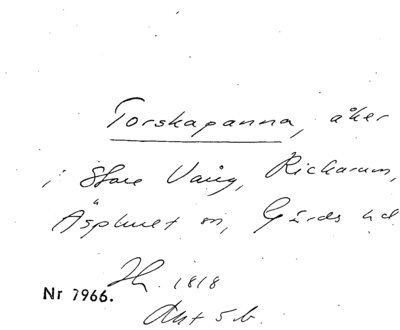 Torskapanna, åker
i Store Vång, Rickarum,
Äsphult sn, Gärds hd
1818
Nr 7966.
Akt 5 b.